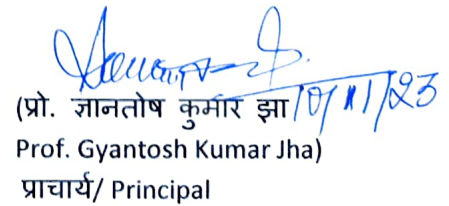 (प्रो. ज्ञानतोष कुमार झा 10/11/23
Prof. Gyantosh Kumar Jha)
प्राचार्य/ Principal